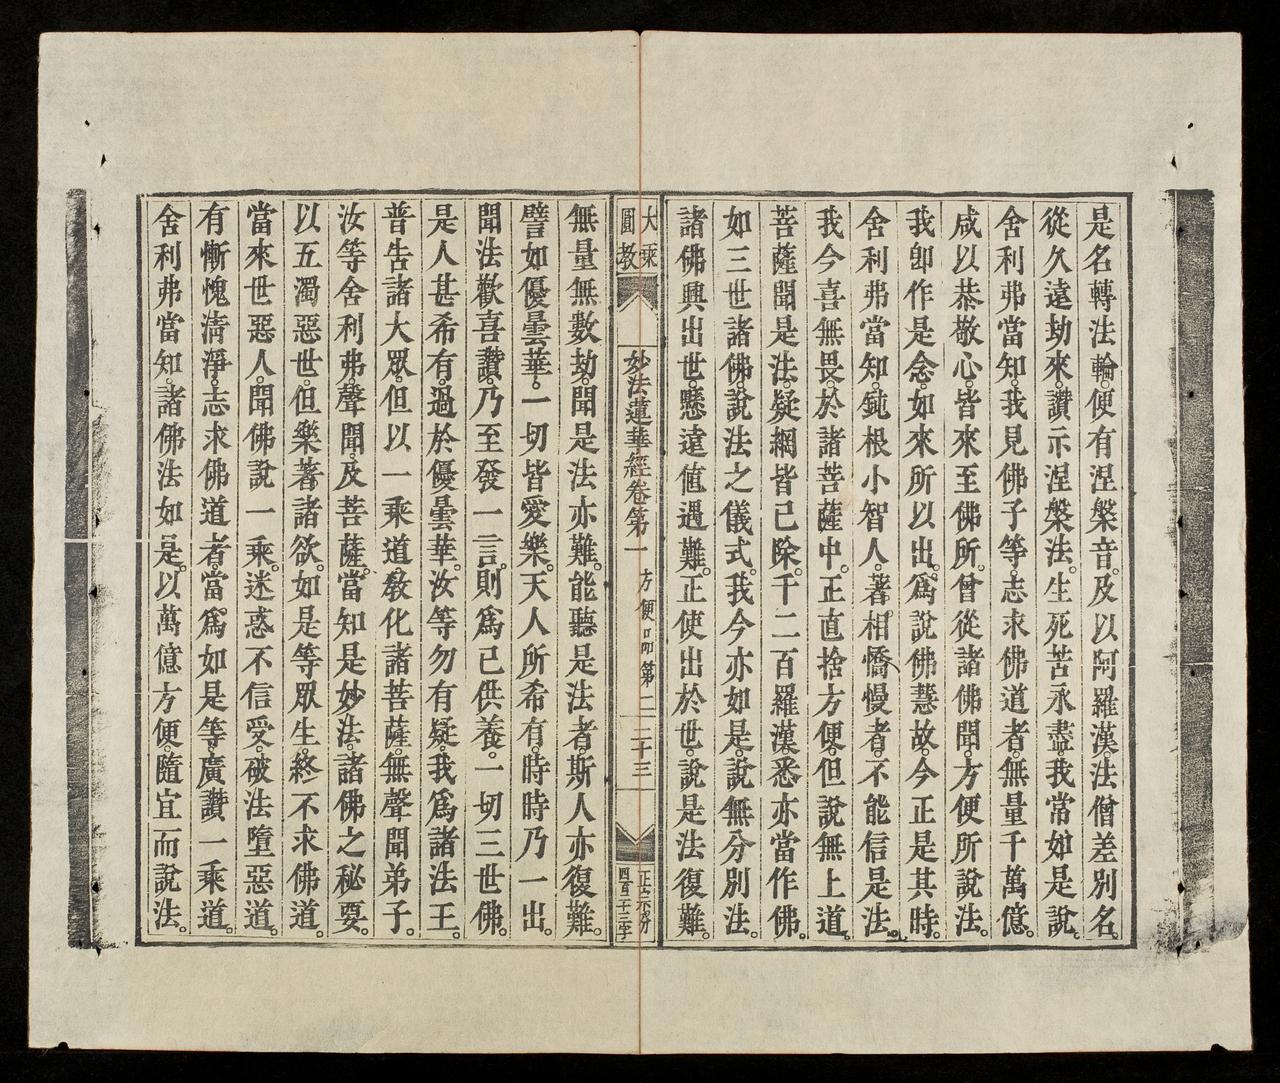 是名轉法輪。便有涅槃音。及以阿羅漢法僧差別名。
從久遠劫來。讚示涅槃法。生死苦永盡。我常如是說。
舍利弗當知。我見佛子等。志求佛道者。無量千萬億。
咸以恭敬心。皆來至佛所。曾從諸佛聞。方便所說法。
我卽作是念。如來所以出。爲說佛慧故。今正是其時。
舍利弗當知。鈍根小智人。著相憍慢者。不能信是法。
我今喜無畏。於諸菩薩中。正直捨方便。但說無上道。
菩薩聞是法。疑網皆已除。千二百羅漢。悉亦當作佛。
如三世諸佛。說法之儀式。我今亦如是。說無分別法。
諸佛興出世。懸遠值遇難。正使出於世。說是法復難。
大乘
圓教
妙法蓮華經卷第一 方便品第二 二十三
正宗分
四百二十三字
無量無數劫。聞是法亦難。能聽是法者。斯人亦復難。
譬如優曇華。一切皆愛樂。天人所希有。時時乃一出。
聞法歡喜讚。乃至發一言。則爲已供養。一切三世佛。
是人甚希有。過於優曇華。汝等勿有疑。我爲諸法王。
普告諸大眾。但以一乘道。敎化諸菩薩。無聲聞弟子。
汝等舍利弗。聲聞及菩薩。當知是妙法。諸佛之秘要。
以五濁惡世。但樂著諸欲。如是等眾生。終不求佛道。
當來世惡人。聞佛說一乘。迷惑不信受。破法墮惡道。
有慚愧淸淨。志求佛道者。當爲如是等。廣讚一乘道。
舍利弗當知。諸佛法如是。以萬億方便。隨宜而說法。